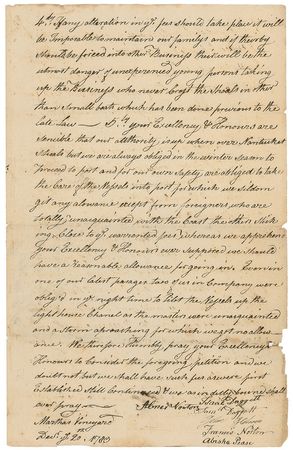 4thly If any alteration in ye. fees should take place it will
be Imposable to maintain our familys and if thereby
should be forced into other Business their will be the
utmost danger of unexperienced young persons taking
up the Business who never Crost the Shoals in other
than Small boats which has been done previous to the
late Law — 5thly your Excellency & Honours are
sensible that our authority is up when over Nantucket
Shoals but we are always obliged in the winter season to
proceed to port and for our own safety are obliged to take
the Care of the Vessels into port for which we seldom
get any allowance except from foreigners who are
totally unaquainted with the Coast the others
Close to ye. warranted fees whereas we apprehend
your Excellency & Honours ever supposed we should
have a reasonable allowance for going in. Even in
one of our latest passages two of us in Company were
oblig'd in ye. night time to Pilot the Vessels up the
light house Chanel as the masters were unaquainted
and a storm aproaching for which we got no allow
ance. We therefore Humbly pray your Excellency &
Honours to Consider the foregoing petition and we
doubt not but we shall have such fees as were first
Established Still Continued & we as in duty bound shall
ever pray
Abner Norton
Marthas Vineyard
Decr. ye. 20. 1783
Francis Norton
Abisha Pease